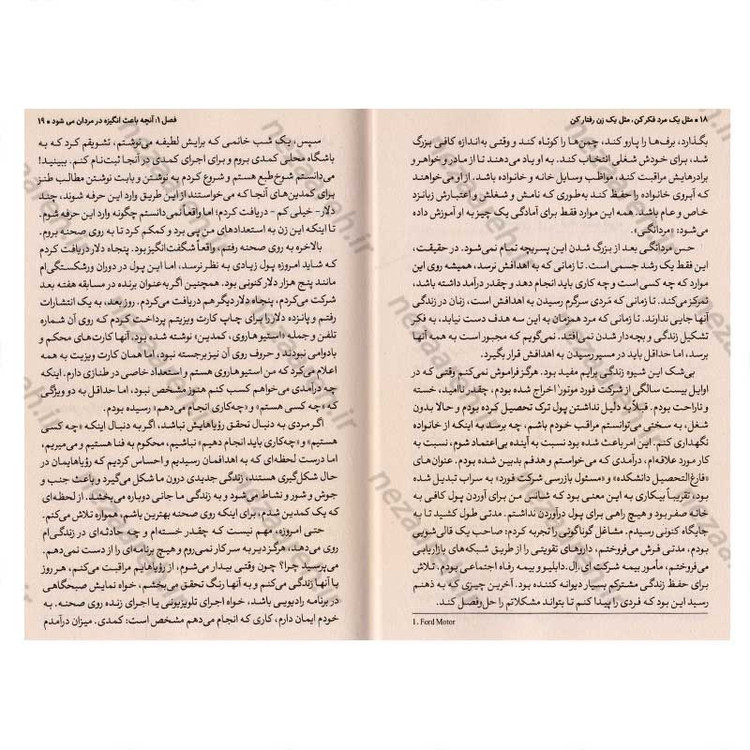 ۱۸ • مثل یک مرد فکر کن، مثل یک زن رفتار کن
بگذارد، برف‌ها را پارو کند، چمن‌ها را کوتاه کند و وقتی به‌اندازه کافی بزرگ
شد، برای خودش شغلی انتخاب کند. به او یاد می‌دهند تا از مادر و خواهر و
برادرهایش مراقبت کند، مواظب وسایل خانه و خانواده باشد. از او می‌خواهند
که آبروی خانواده را حفظ کند به‌طوری که نامش و شغلش و اعتبارش زبانزد
خاص و عام باشد. همه این موارد فقط برای آمادگی یک چیز به او آموزش داده
می‌شود: «مردانگی».
حس مردانگی بعد از بزرگ شدن این پسربچه تمام نمی‌شود. در حقیقت،
این فقط یک رشد جسمی است. تا زمانی که به اهدافش نرسد، همیشه روی این
موارد که چه کسی است و چه کاری باید انجام دهد و چقدر درآمد داشته باشد،
تمرکز می‌کند. تا زمانی که مردی سرگرم رسیدن به اهدافش است، زنان در زندگی
آنها جایی ندارند. تا زمانی که مرد همزمان به این سه هدف دست نیابد، به فکر
تشکیل زندگی و بچه‌دار شدن نمی‌افتد. نمی‌گویم که مجبور است به همه آنها
برسد، اما حداقل باید در مسیر رسیدن به اهدافش قرار بگیرد.
بی‌شک این شیوه زندگی برایم مفید بود. هرگز فراموش نمی‌کنم وقتی که در
اوایل بیست سالگی از شرکت فورد موتور۱ اخراج شده بودم، چقدر ناامید، خسته
و ناراحت بودم. قبلاً به دلیل نداشتن پول ترک تحصیل کرده بودم و حالا بدون
شغل، به سختی می‌توانستم مراقب خودم باشم، چه برسد به اینکه از خانواده
نگهداری کنم. این امر باعث شده بود نسبت به آینده بی‌اعتماد شوم، نسبت به
کار مورد علاقه‌ام، درآمدی که می‌خواستم و هدفم بدبین شده بودم. عنوان‌های
«فارغ‌التحصیل دانشکده» و «مسئول بازرسی شرکت فورد» به سراب تبدیل شده
بود، تقریباً بیکاری به این معنی بود که شانس من برای آوردن پول کافی به
خانه صفر بود و هیچ راهی برای پول درآوردن نداشتم. مدتی طول کشید تا به
جایگاه کنونی رسیدم. مشاغل گوناگونی را تجربه کردم؛ صاحب یک قالی‌شویی
بودم، مدتی فرش می‌فروختم، داروهای تقویتی را از طریق شبکه‌های بازاریابی
می‌فروختم، مأمور بیمه شرکت ای.ال.دابلیو و بیمه رفاه اجتماعی بودم. تلاش
برای حفظ زندگی مشترکم بسیار دیوانه کننده بود. آخرین چیزی که به ذهنم
رسید این بود که فردی را پیدا کنم تا بتواند مشکلاتم را حل‌وفصل کند.
1. Ford Motor
فصل ۱: آنچه باعث انگیزه در مردان می شود • ۱۹
سپس، یک شب خانمی که برایش لطیفه می‌نوشتم، تشویقم کرد که به
باشگاه محلی کمدی بروم و برای اجرای کمدی در آنجا ثبت‌نام کنم. ببینید!
می‌دانستم شوخ‌طبع هستم و شروع کردم به نوشتن و بابت نوشتن مطالب طنز
برای کمدین‌های آنجا که می‌خواستند از این طریق وارد این حرفه شوند، چند
دلار- خیلی کم - دریافت کردم؛ اما واقعاً نمی‌دانستم چگونه وارد این حرفه شوم.
تا اینکه این زن به استعدادهای من پی برد و کمکم کرد تا به روی صحنه بروم.
بالاخره به روی صحنه رفتم. واقعاً شگفت‌انگیز بود. پنجاه دلار دریافت کردم
که شاید امروزه پول زیادی به نظر نرسد، اما این پول در دوران ورشکستگی‌ام
مانند پنج هزار دلار کنونی بود. همچنین اگر به‌عنوان برنده در مسابقه هفته بعد
شرکت می‌کردم، پنجاه دلار دیگر هم دریافت می‌کردم. روز بعد، به یک انتشارات
رفتم و پانزده دلار را برای چاپ کارت ویزیتم پرداخت کردم که روی آن شماره
تلفن و جمله «استیو هاروی، کمدین» نوشته شده بود. آنها کارت‌های محکم و
بادوامی نبودند و حروف روی آن نیز برجسته نبود، اما همان کارت ویزیت به همه
اعلام می‌کرد که من استیو هاروی هستم و استعداد خاصی در طنازی دارم. اینکه
چه درآمدی می‌خواهم کسب کنم هنوز مشخص نبود، اما حداقل به دو ویژگی
که «چه کسی هستم» و «چه‌کاری انجام می‌دهم» رسیده بودم.
اگر مردی به دنبال تحقق رؤیاهایش نباشد، اگر به دنبال اینکه «چه کسی
هستیم» و «چه‌کاری باید انجام دهیم» نباشیم، محکوم به فنا هستیم و می‌میریم،
اما درست لحظه‌ای که به اهدافمان رسیدیم و احساس کردیم که رؤیاهایمان در
حال شکل‌گیری هستند، زندگی جدیدی درون ما شکل می‌گیرد و باعث جنب و
جوش و شور و نشاط می‌شود و به زندگی ما جانی دوباره می‌بخشد. از لحظه‌ای
که یک کمدین شدم، برای اینکه روی صحنه بهترین باشم، همواره تلاش می‌کنم.
حتی امروزه، مهم نیست که چقدر خسته‌ام و چه حادثه‌ای در زندگی‌ام
روی می‌دهد، هرگز دیر به سر کار نمی‌روم و هیچ برنامه‌ای را از دست نمی‌دهم.
می‌پرسید چرا؟ چون وقتی بیدار می‌شوم، از رؤیاهایم مراقبت می‌کنم، هر روز
با آنها زندگی می‌کنم و به آنها رنگ تحقق می‌بخشم، خواه نمایش صبحگاهی
در برنامه رادیویی باشد، خواه اجرای تلویزیونی یا اجرای زنده روی صحنه. به
خودم ایمان دارم، کاری که انجام می‌دهم مشخص است: کمدی. میزان درآمدم